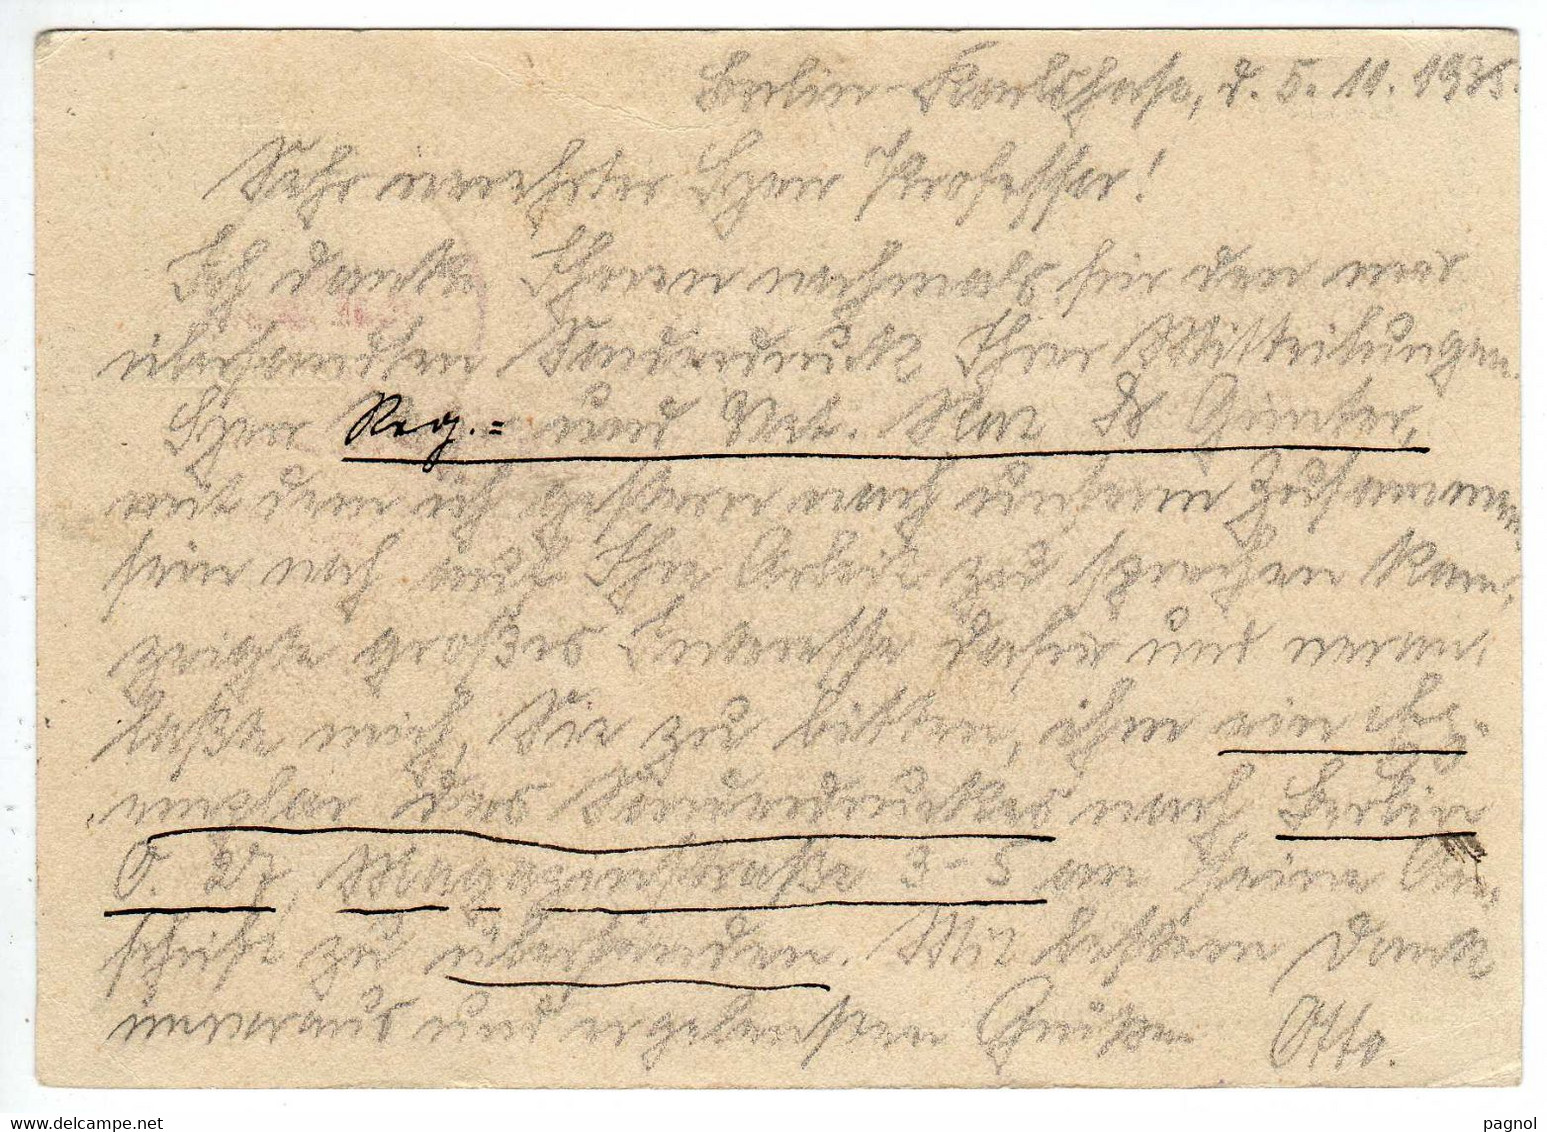 Berlin-Karlshorst, d. 5. 10. 1935.
Sehr verehrter Herr Professor!
Ich danke Ihnen nochmals für den mir
übersandten Sonderdruck Ihrer Mitteilungen.
Herr Reg.= und Rat Dr Günter,
mit dem ich gestern nach unserm Zusammen-
sein noch auf Ihre Arbeit zu sprechen kam,
zeigte großes Interesse dafür und veran-
laßte mich, Sie zu bitten, ihm ein Ex-
emplar des Sonderdruckes nach Berlin
O. 27, Magazinstraße 3-5 an seine An-
schrift zu übersenden. Mit bestem Dank
im voraus und ergebensten Grüßen Otto.
pagnol
www.delcampe.net